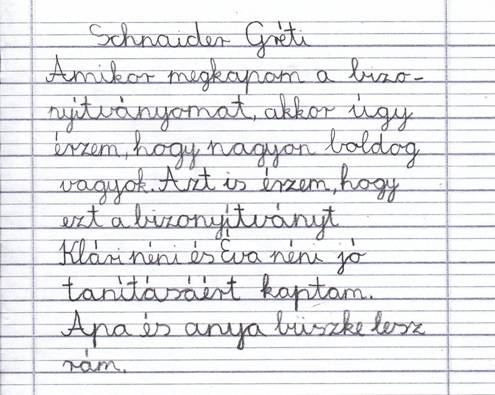 Schnaider Gréti
Amikor megkapom a bizo-
nyítványomat, akkor úgy
érzem, hogy nagyon boldog
vagyok. Azt is érzem, hogy
ezt a bizonyítványt
Klári néni és Éva néni jó
tanításáért kaptam.
Apa és anya büszke lesz
rám.